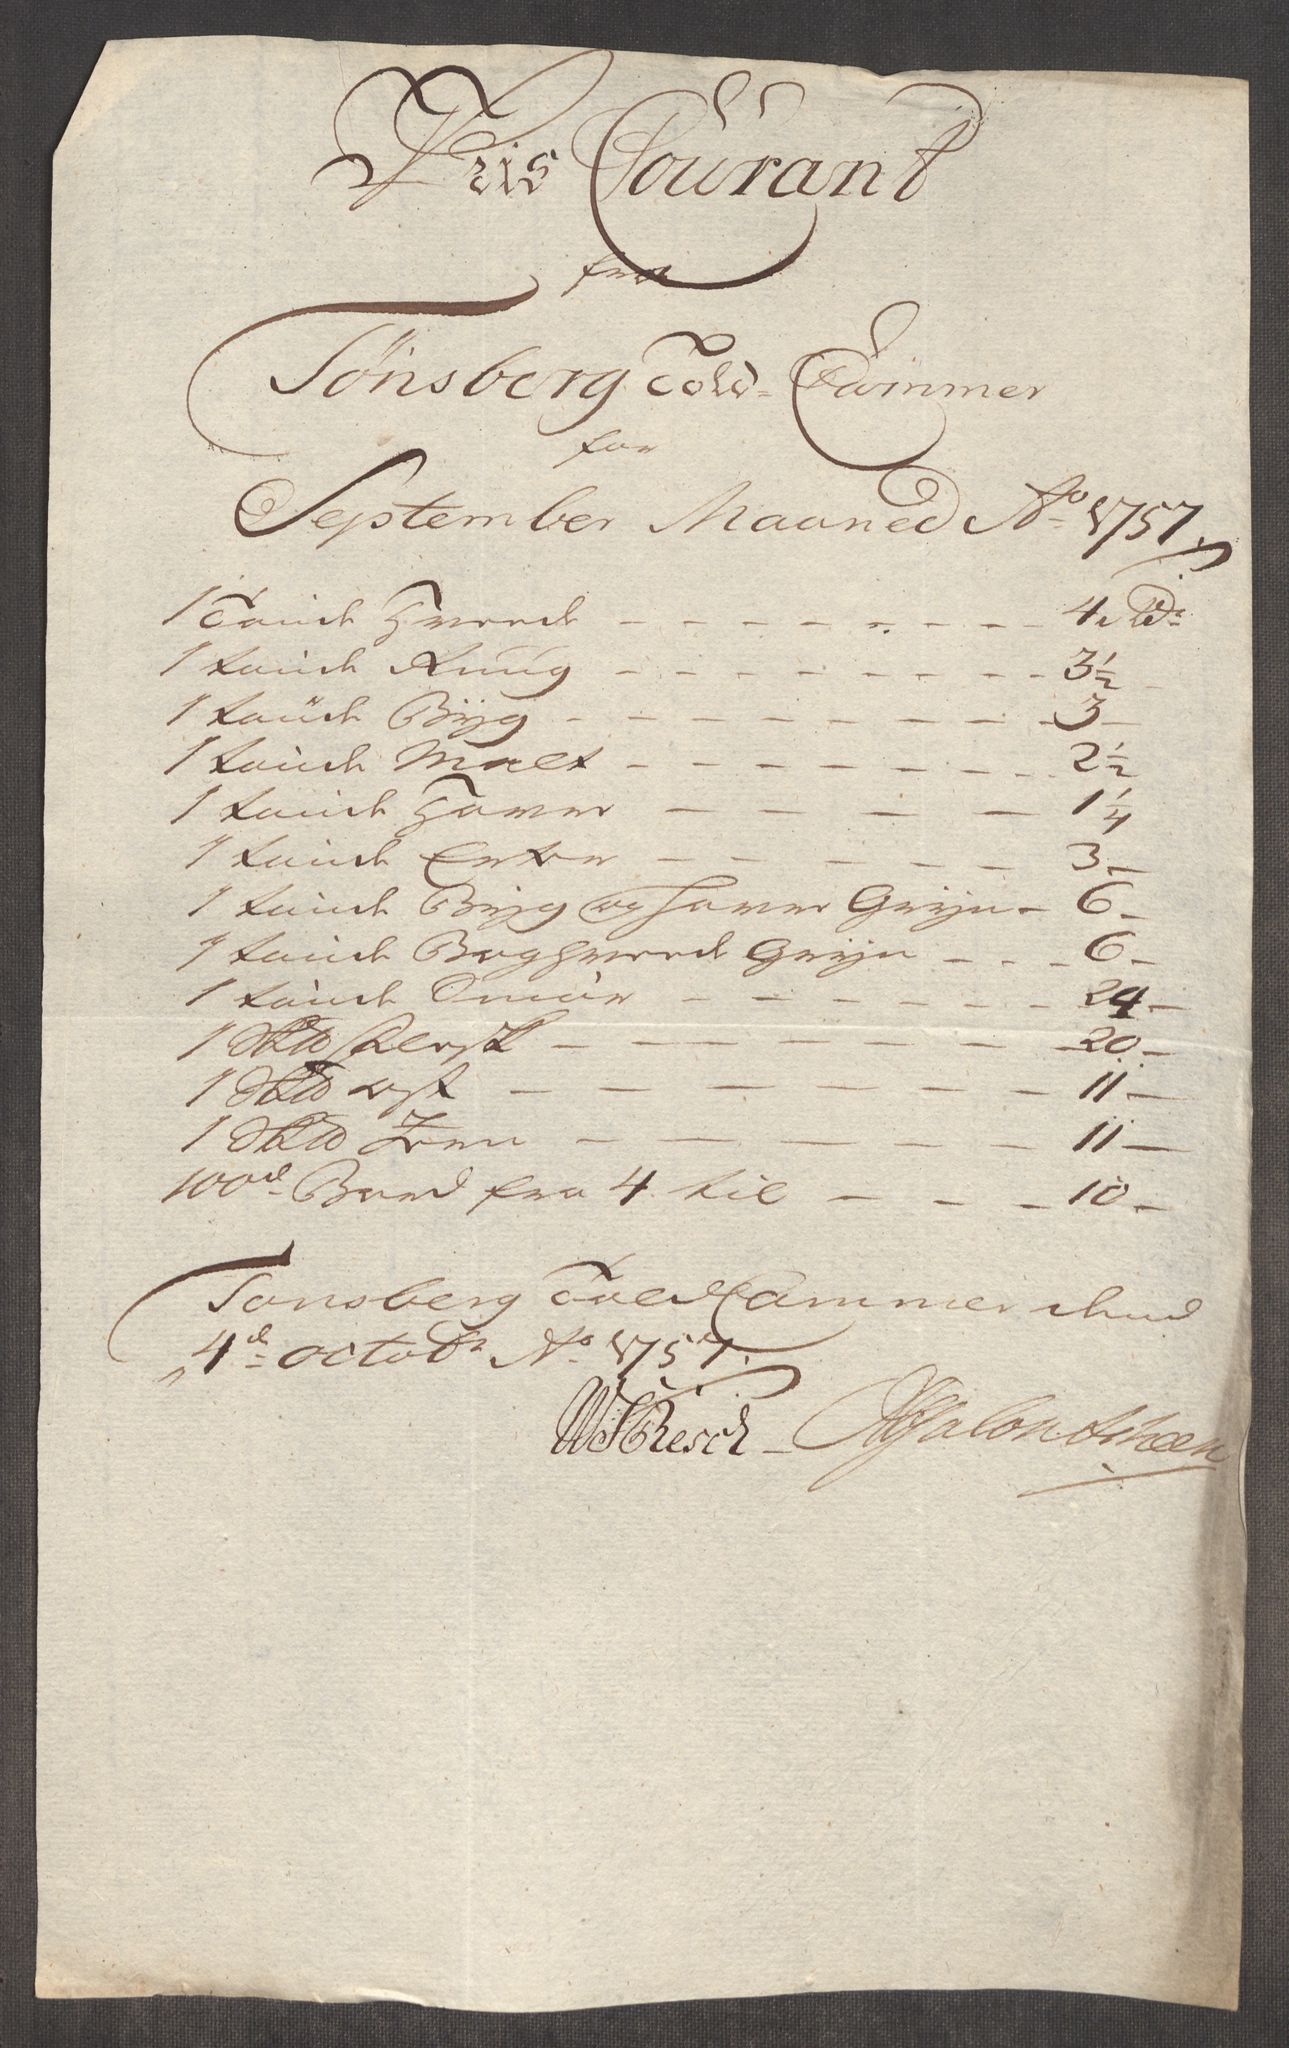 Pris Courant
fra
Tönsberg Told-Cammer
for
September Maaned Ao 1757.
1 Tönde Hvede - - - - - - - - 4 Rd:
1 tönde Rüug - - - - - - - - 3 1/2 -
1 tönde Bÿg - - - - - - - - 3 -
1 tönde Malt - - - - - - - - 2 1/2
1 tönde Haver - - - - 1 1/4
1 tönde Erter - - - - - - 3 -
1 tönde Bÿg og Haver Grÿn - 6 -
1 tönde Boghvede Grÿn - - - 6 -
1 tönde Smör - - - - - - 24 -
1 Skd Flesk - - - - - - - 20 -
1 Skd ost - - - - - - - 11 -
1 Skd Jern - - - - - - 11 -
100de Bord fra 4 til - - - - 10 -
Tonsberg Told Cammer den
4de octobr Ao 1757.
Resch -